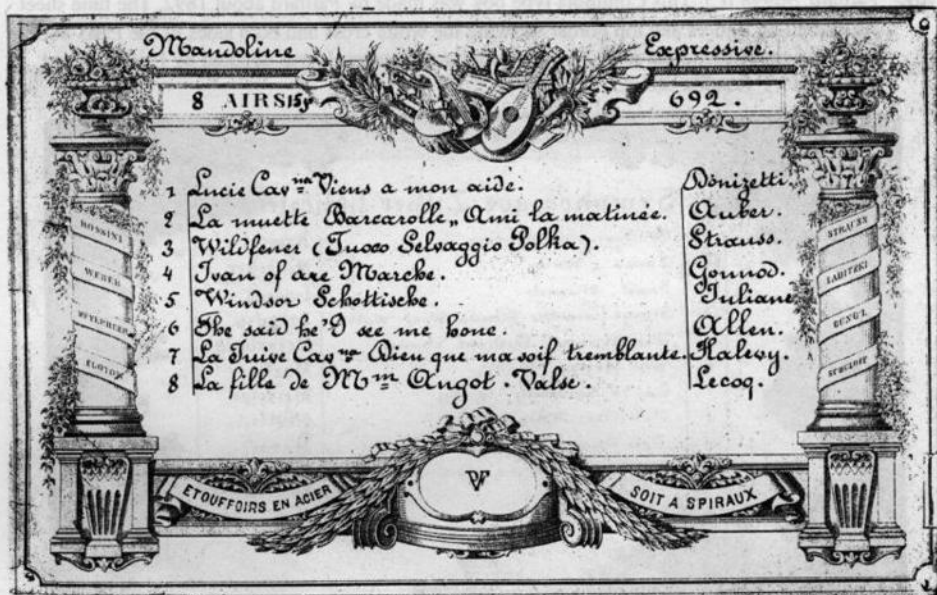 Mandoline Expressive.
8 AIRS 692.
1 Lucie Cav.na Viens a mon aide. Donizetti.
2 La muette Barcarolle „ Ami la matinée. Auber.
3 Wildfener (Fuoco Selvaggio Polka). Strauss.
4 Jvan of are Marche. Gounod.
5 Windsor Schottische. Juliane
6 She said he'd see me hone. Allen.
7 La Juive Cav.na Dieu que ma soif tremblante. Halevy.
8 La fille de Mm Angot. Valse. Lecoq.
ROSSINI
WEBER
MEYERBEER
FLOTOW
STRAUSS
LABITZKI
GUNGL
ETOUFFOIRS EN ACIER
VF
SOIT A SPIRAUX